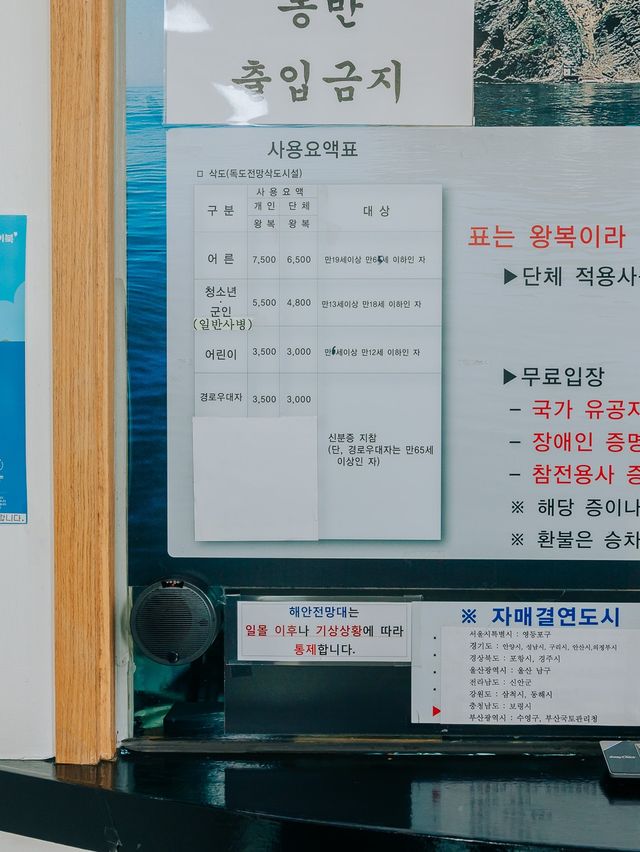 동반
출입금지
사용요액표
□ 삭도(독도전망삭도시설)
구 분
사 용 요 액
개 인 단 체
왕 복 왕 복
대 상
어 른 7,500 6,500 만19세이상 만65세 이하인 자
청소년
·
군인
(일반사병)
5,500 4,800 만13세이상 만18세 이하인 자
어린이 3,500 3,000 만6세이상 만12세 이하인 자
경로우대자 3,500 3,000
신분증 지참
(단, 경로우대자는 만65세
이상인 자)
표는 왕복이라
▶단체 적용사
▶무료입장
- 국가 유공자
- 장애인 증명
- 참전용사 증
※ 해당 증이나
※ 환불은 승차
해안전망대는
일몰 이후나 기상상황에 따라
통제합니다.
※ 자매결연도시
서울시특별시 : 영등포구
경기도 : 안양시, 성남시, 구리시, 안산시,의정부시
경상북도 : 포항시, 경주시
울산광역시 : 울산 남구
전라남도 : 신안군
강원도 : 삼척시, 동해시
충청남도 : 보령시
부산광역시 : 수영구, 부산국토관리청
합니다.